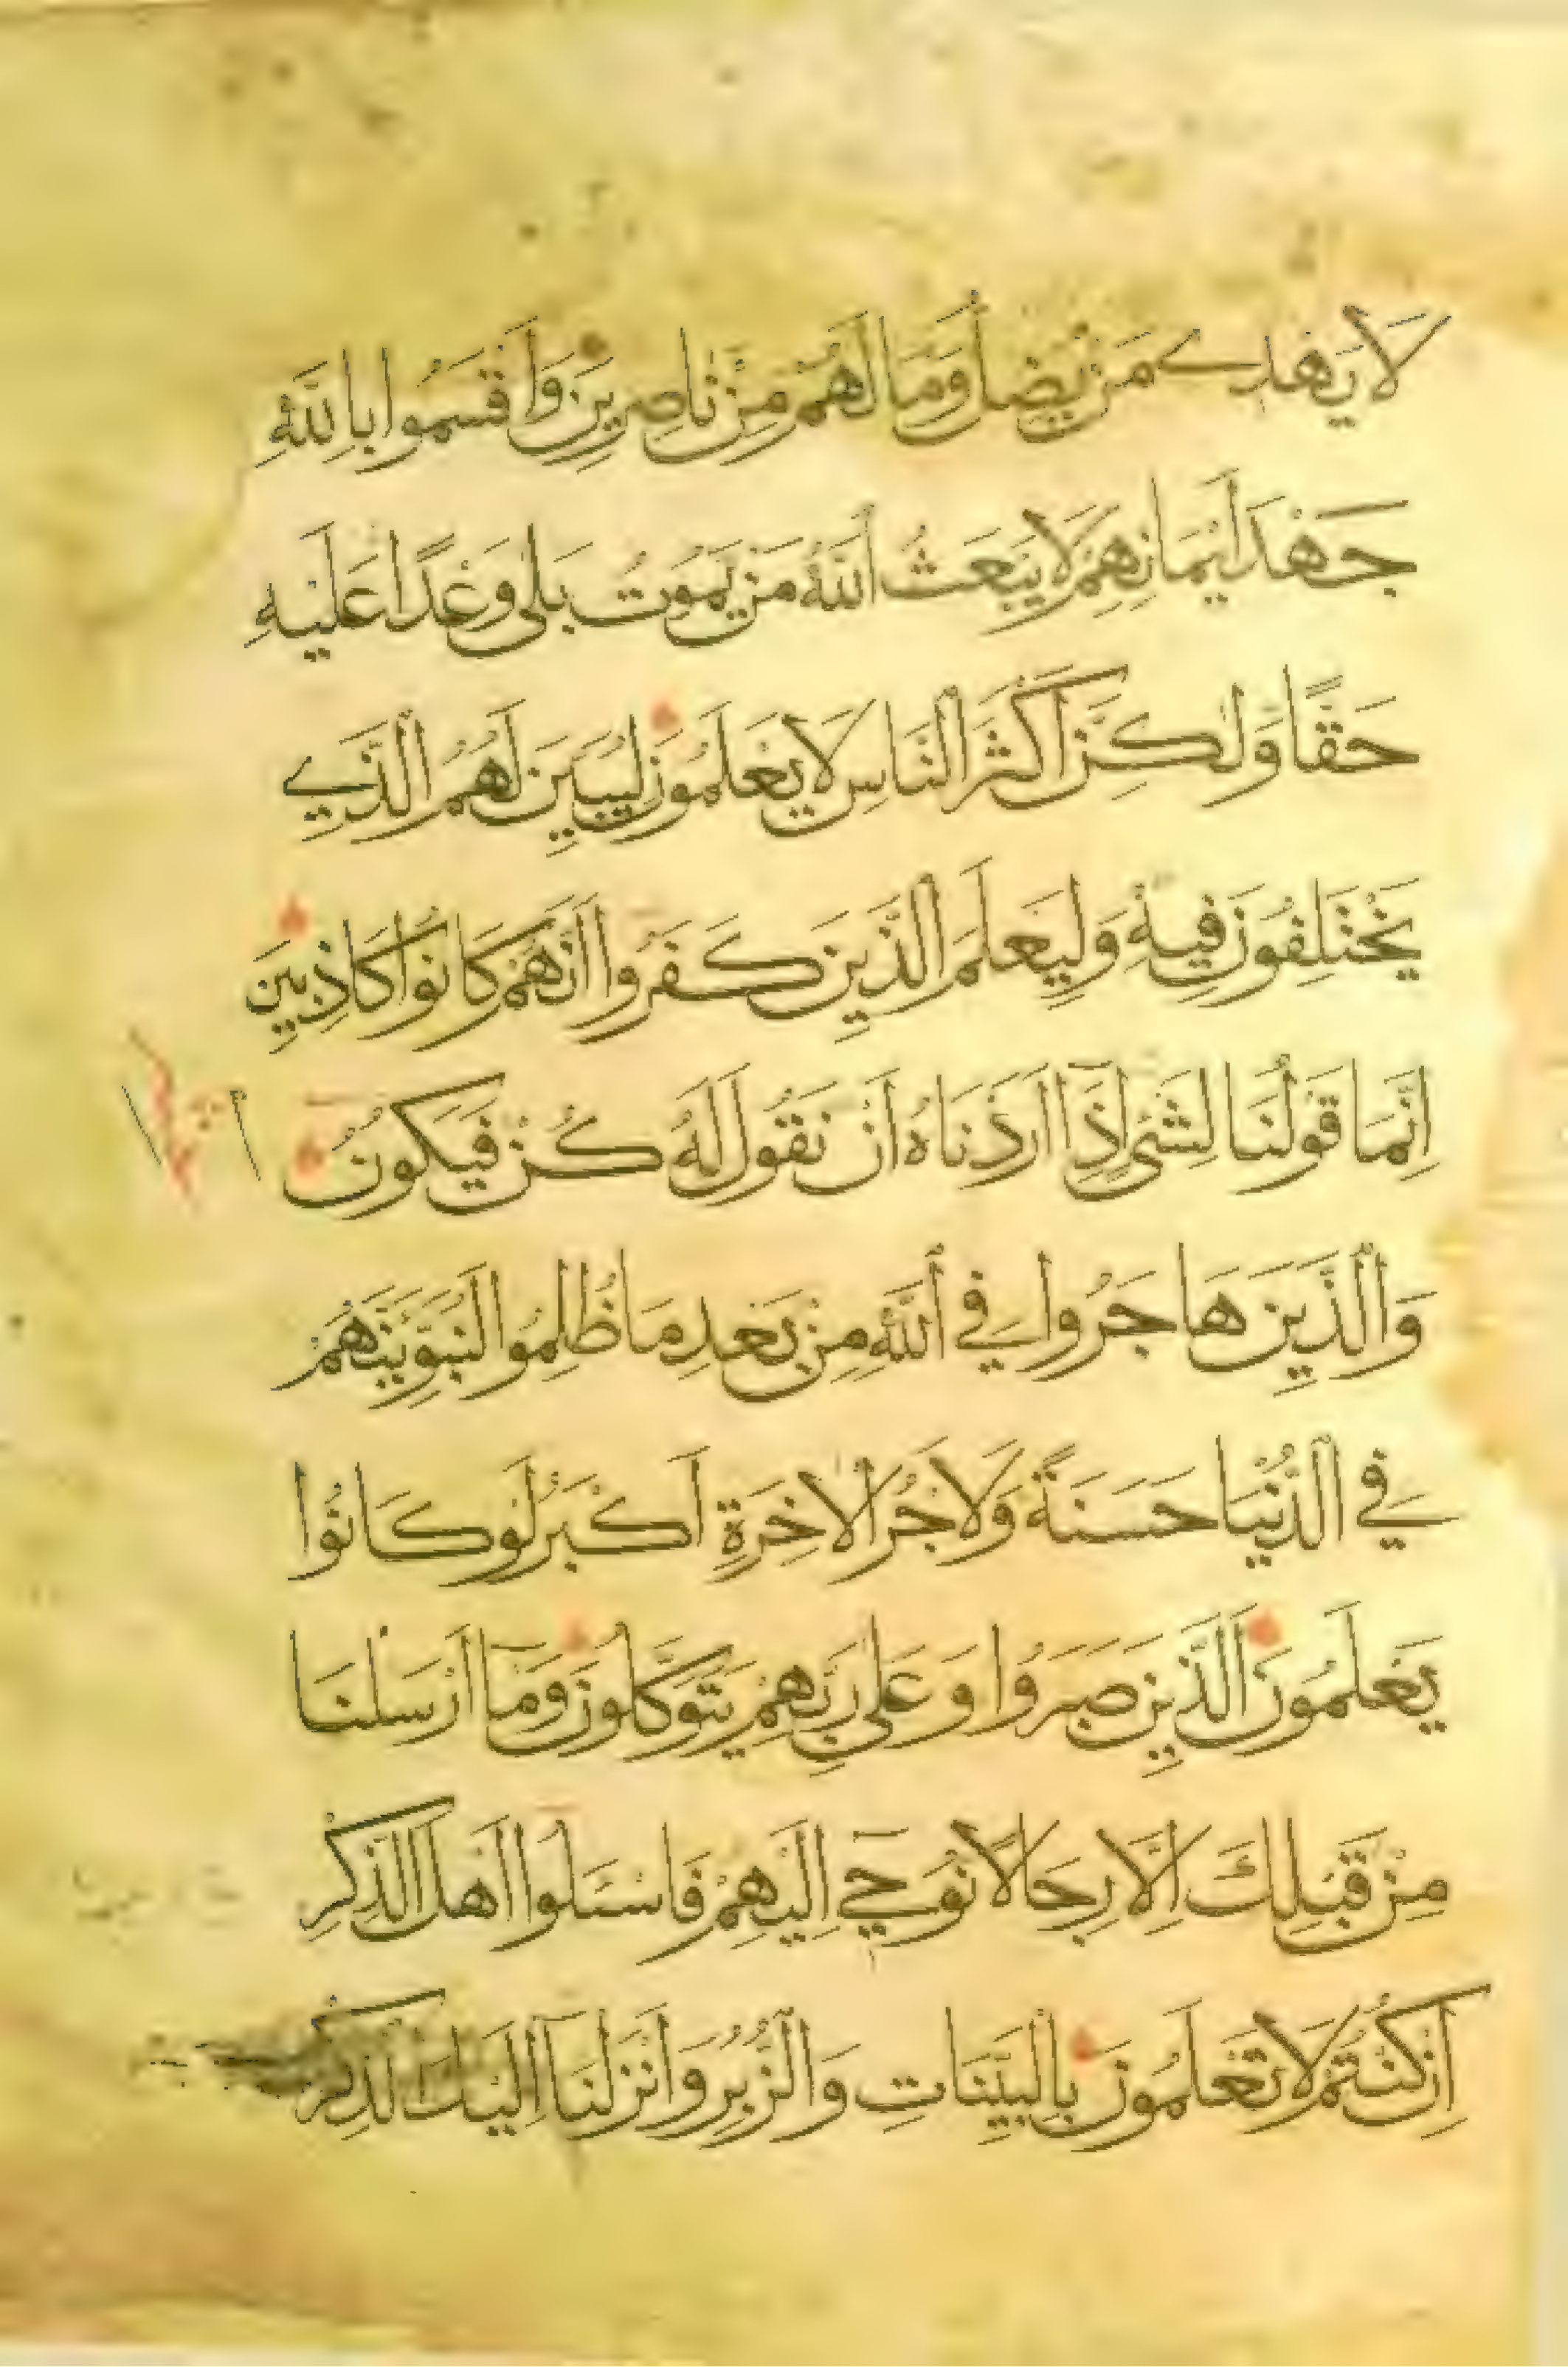 لَا يَهْدِي مَنْ يُضِلُّ وَمَا لَهُمْ مِنْ نَاصِرِينَ وَأَقْسَمُوا بِاللَّهِ
جَهْدَ أَيْمَانِهِمْ لَا يَبْعَثُ اللَّهُ مَنْ يَمُوتُ بَلَى وَعْدًا عَلَيْهِ
حَقًّا وَلَكِنَّ أَكْثَرَ النَّاسِ لَا يَعْلَمُونَ لِيُبَيِّنَ لَهُمُ الَّذِي
يَخْتَلِفُونَ فِيهِ وَلِيَعْلَمَ الَّذِينَ كَفَرُوا أَنَّهُمْ كَانُوا كَاذِبِينَ
إِنَّمَا قَوْلُنَا لِشَيْءٍ إِذَا أَرَدْنَاهُ أَنْ نَقُولَ لَهُ كُنْ فَيَكُونُ
وَالَّذِينَ هَاجَرُوا فِي اللَّهِ مِنْ بَعْدِ مَا ظُلِمُوا لَنُبَوِّئَنَّهُمْ
فِي الدُّنْيَا حَسَنَةً وَلَأَجْرُ الْآخِرَةِ أَكْبَرُ لَوْ كَانُوا
يَعْلَمُونَ الَّذِينَ صَبَرُوا وَعَلَى رَبِّهِمْ يَتَوَكَّلُونَ وَمَا أَرْسَلْنَا
مِنْ قَبْلِكَ إِلَّا رِجَالًا نُوحِي إِلَيْهِمْ فَاسْئَلُوا أَهْلَ الذِّكْرِ
إِنْ كُنْتُمْ لَا تَعْلَمُونَ بِالْبَيِّنَاتِ وَالزُّبُرِ وَأَنْزَلْنَا إِلَيْكَ الذِّكْرَ